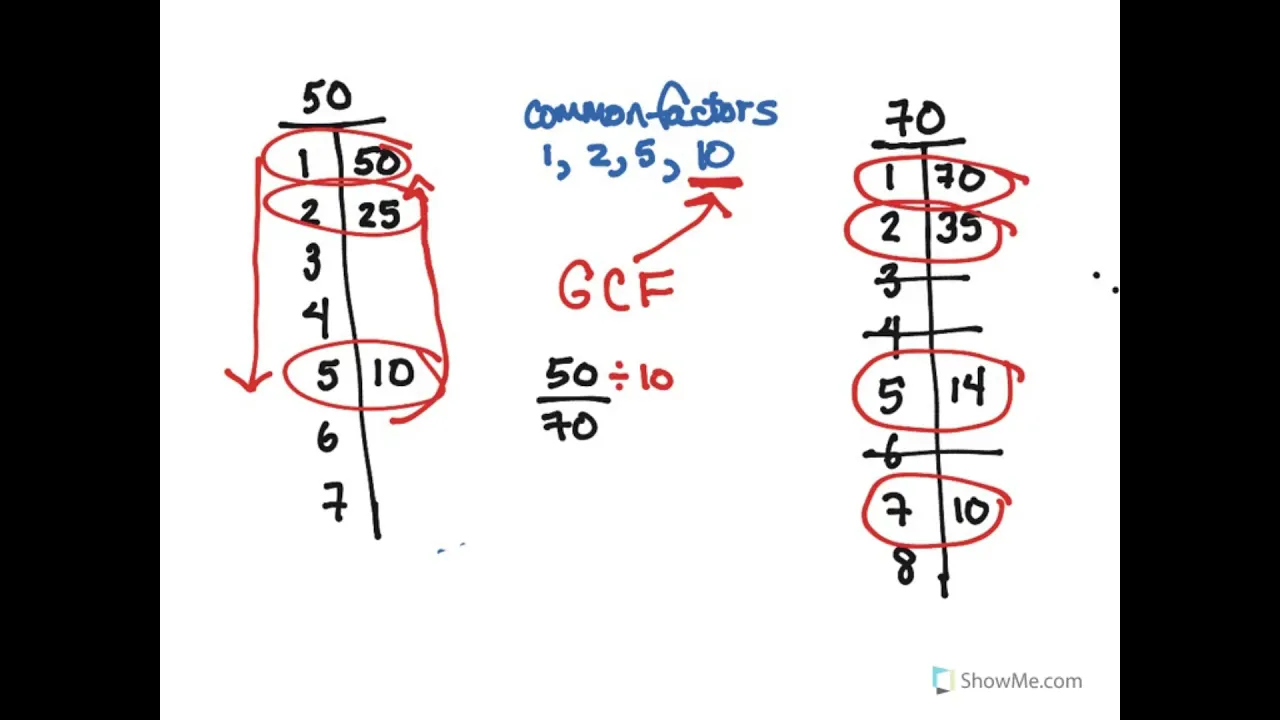 50
1 50
2 25
3
4
5 10
6
7
common factors
1, 2, 5, 10
GCF
50 ÷ 10
70
70
1 70
2 35
3
4
5 14
6
7 10
8
ShowMe.com